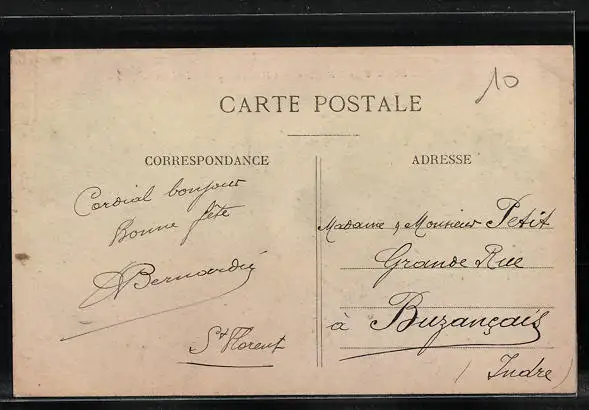 10
CARTE POSTALE
CORRESPONDANCE
Cordial bonjour
Bonne fête
St Florent
ADRESSE
Madame & Monsieur Petit
Grande Rue
à Buzançais
(Indre)